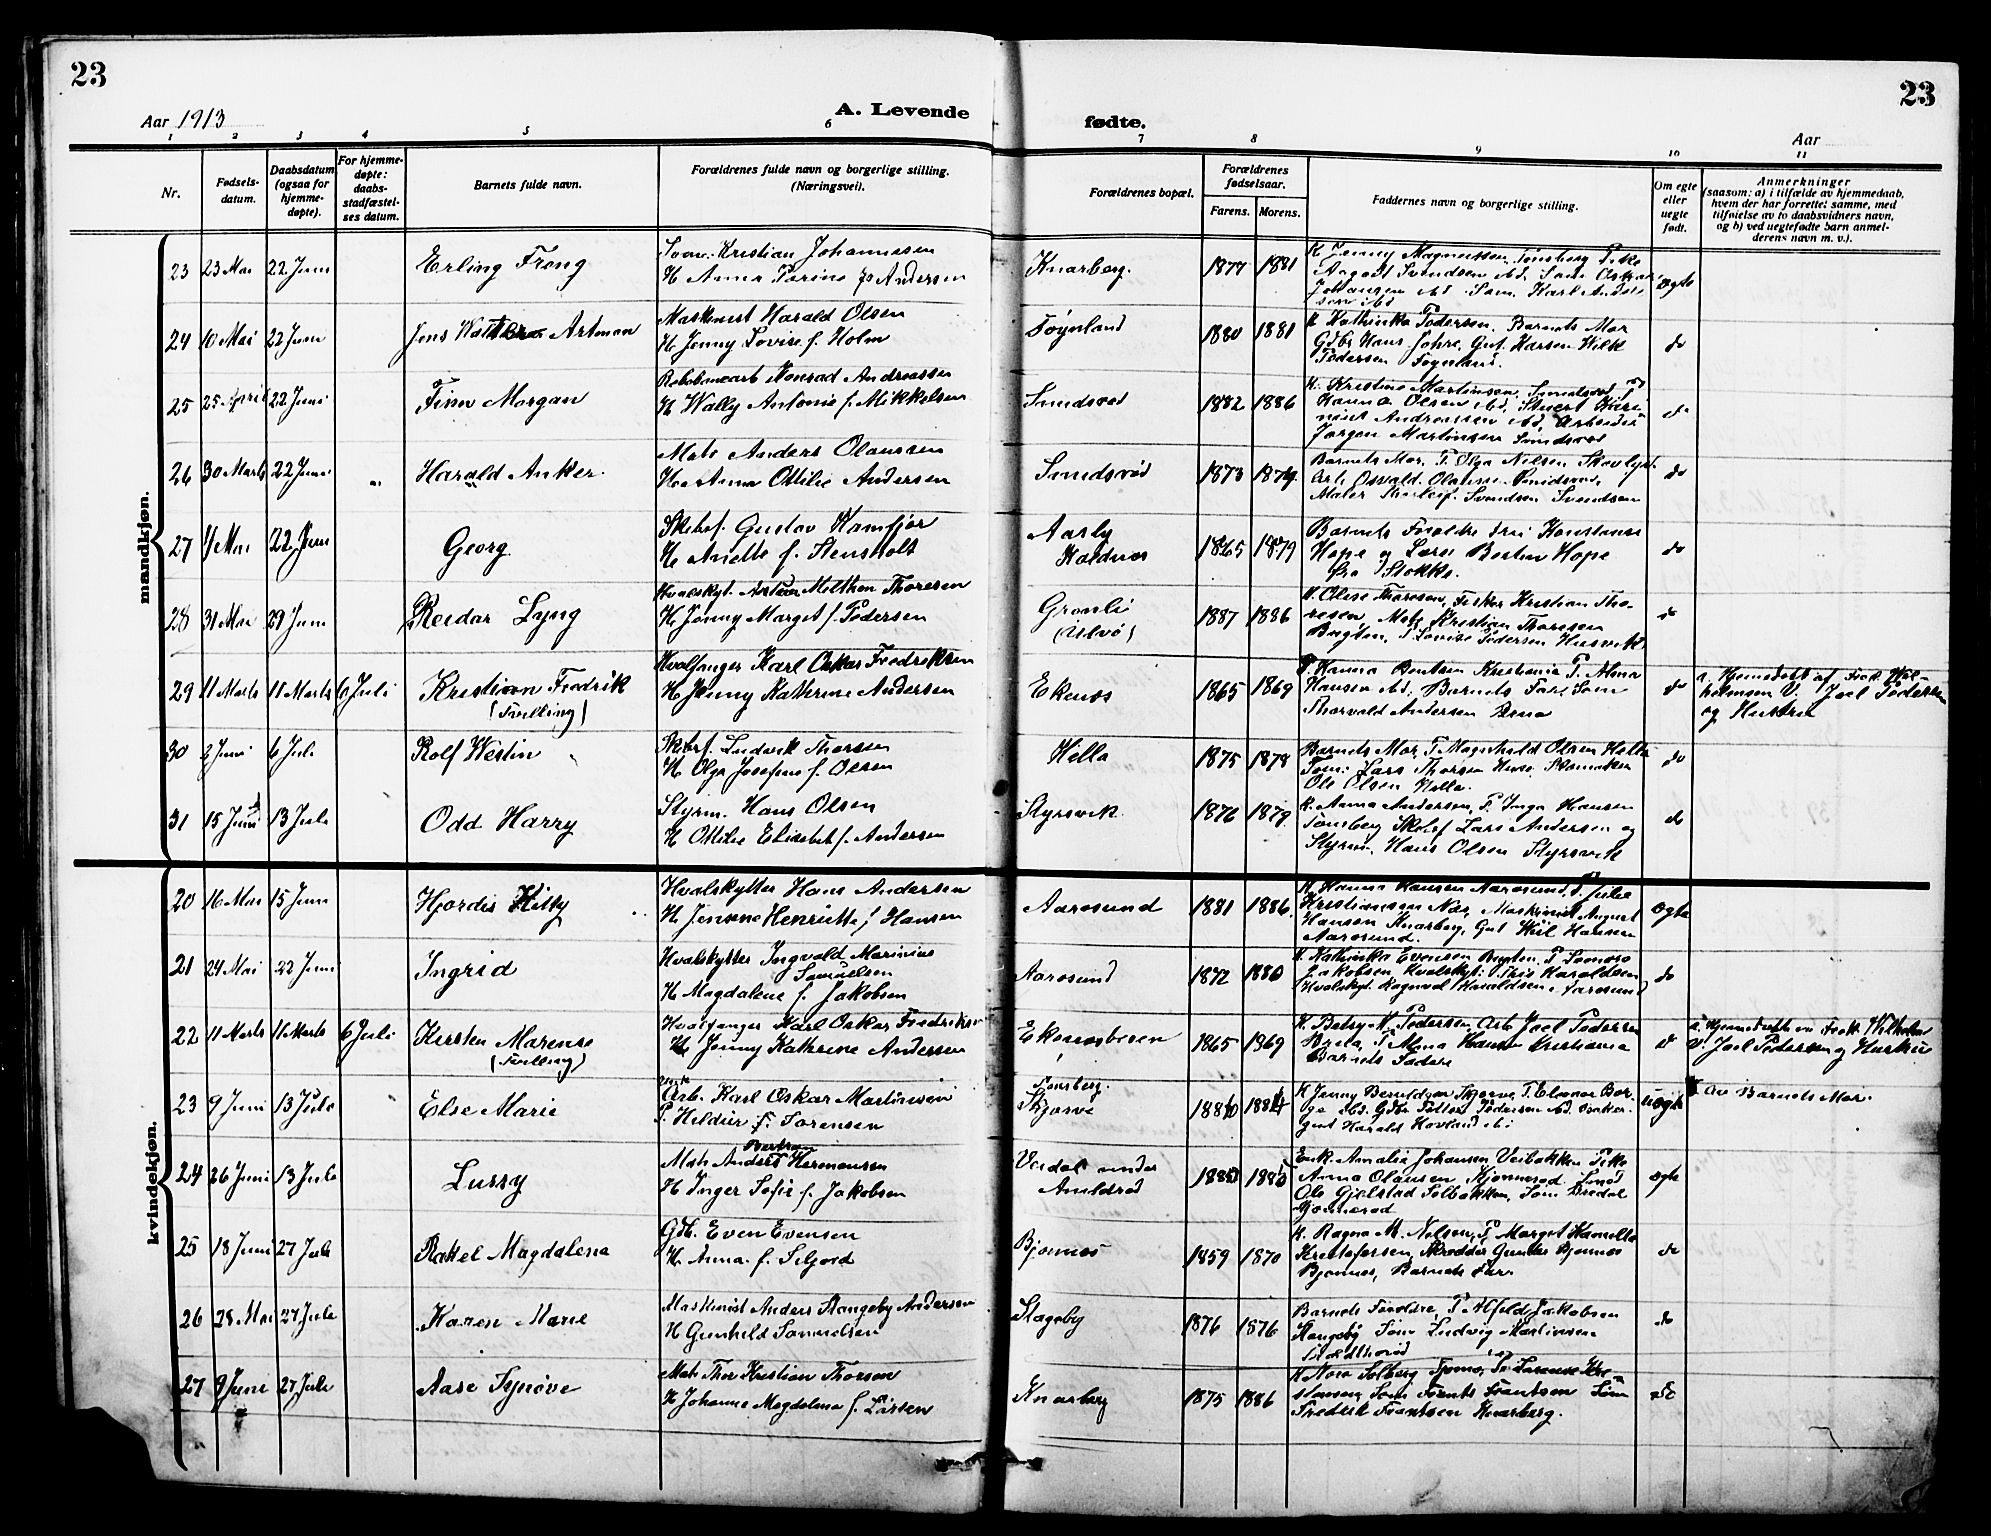 23
23
Aar 1913
A. Levende
fødte.
Aar
1 2 3 4 5 6 7 8 9 10 11
Nr.
Fødsels-
datum.
Daabsdatum
(ogsaa for
hjemme-
døpte).
For hjemme-
døpte:
daabs-
stadfæstel-
ses datum.
Barnets fulde navn.
Forældrenes fulde navn og borgerlige stilling.
(Næringsvei).
Forældrenes bopæl.
Forældrenes
fødselsaar.
Farens. Morens.
Faddernes navn og borgerlige stilling.
Om egte
eller
uegte
født.
Anmerkninger
(saasom: a) i tilfælde av hjemmedaab,
hvem der har forrettet samme, med
tilføielse av to daabsvidners navn,
og b) ved uegtefødte barn anmel-
derens navn m. v.).
mandkjøn.
23 23 Mai 22 Juni Erling Frong
Søm. Kristian Johannessen
H. Anna Torine f. Andersen
Knarberg. 1877 1881
K Jenny Magnussen Tønsberg Pike
Aagot Svendsen ibd. Søm Oskar
Johansen ibd. Søm. Karl Andre
sen ibd
egte
24 10 Mai 22 Juni Jens Artman
Maskinist Harald Olsen
H. Jenny Lovise f. Holm
Føynland 1880 1881
K Kathinka Pedersen. Barnets Mor
Gdbr Hans Johre, Gut. Karsen Wilh
Pedersen Føynland.
do
25 25 April 22 Juni Finn Morgan
Konrad Andreassen
H. Wally Antonie f. Mikkelsen
Smidsrød 1882 1886
K. Kristine Martinsen, Smidsrød P
Hanna Olsen ibd, Stuert Mari
nius Andreassen ibd, Arbeider
Jørgen Martinsen Smidsrød
do
26 30 Marts 22 Juni " Harald Anker.
Mats Anders Olaussen
H. Anna Ottilie Andersen
Smidsrød 1873 1874.
Barnets Mor, P. Olga Nilsen Skovlyst
Arb. Osvald Olaussen Smidsrød,
Maler Thorleif Svendsen Svendsen
do
27 1 Mai 22 Juni Georg.
Skibsf. Gustav Kamfjor
H. Anette f. Stensholt
Aarby
Kaldnes
1865 1879
Barnets Forældre Fru Konstanse
Hope og Lærer Bertin Hope
fra Stokke.
do
28 31 Mai 29 Juni Reidar Lyng
Hvalskyt. Anton Milthon Thoresen
H. Jenny Marget f. Pedersen
Grønli
(Ulvø)
1887 1886
K. Olise Thoresen, Fisker Kristian Tho-
resen, Mats Kristian Thoresen
Bugten, P Lovise Pedersen Husvik
do
29 11 Marts 11 Marts 6 Juli Kristian Fredrik
(Tvilling)
Hvalfanger Karl Oskar Fredriksen
H. Jenny Kathrine Andersen
Ekenes 1865 1869
P Hanna Bentsen Kristiania P. Alma
Hansen ibd, Barnets Far Søm
Thorvald Andersen
do
a. Hjemmedøbt af Fred. Wil-
helmsen V. Joel Pedersen
og Hustru
30 2 Juni 6 Juli Rolf Westin
Skibsf. Ludvik Thorsen
H. Olga Josefine f. Olsen
Hella 1875 1878
Barnets Mor, P Magnhild Olsen Hella
Tøm. Lars Thorsen Skomaker
Ole Olsen Hella.
do
31 15 Juni 13 Juli Odd Harry
Styrm. Hans Olsen
H Ottilie Elisabet f. Andersen
Styrsvik 1876 1879.
K. Anna Andersen, P. Inga Hansen
Tønsberg Skibsf Lars Andersen og
Styrm. Hans Olsen Styrsvik
do
kvindekjøn.
20 16 Mai 15 Juni Hjordis Kitty
Hvalskytter Hans Andersen
H. Jensine Henriette f Hansen
Aarøsund 1881 1886.
K Hanna Hansen Aarøsund, P. Julie
Kristiansen Næs, Maskinist August
Hansen Knarberg, Gut Wiil Hansen
Aarøsund.
egte
21 24 Mai 22 Juni Ingrid
Hvalskytter Ingvald Marinius
Samuelsen
H. Magdalene f. Jakobsen
Aarøsund 1872 1880
K. Kathinka Evensen Bugten. P
Jakobsen, Hvalskyt. Haraldsen
Hvalskyt. Ragnval Haraldsen Aarøsund
do
22 11 Marts 11 Marts 6 Juli Kirsten Marense
(Tvilling)
Hvalfanger Karl Oskar Fredriksen
H. Jenny Kathrine Andersen
Ekenesbroen 1865 1869
K. Betsy M. Pedersen, Arb Joel Pedersen
P Alma Hansen Kristiania
Barnets Fader
do
a. Hjemmedøbt av Fredr. Wilhelmsen
V. Joel Pedersen og Hustru
23 9 Juni 13 Juli Else Marie
Arb. Karl Oskar Martinsen
P. Heldur f. Sørensen
Tønsberg.
Skjærve
1880 1884
K Jenny Skjærve P. Elenor Bor-
ge ibd. Gdbr Petter Pedersen ibd.
gut Harald Hovland ibd
uegte
Av Barnets Mor.
24 26 Juni 13 Juli Lussy
Mats Anders Hermansen
H Inger Sofie f. Jakobsen
Vedal under
Amldrød
1885 1885
Enk. Amalie Johansen Veibakken Pike
Anna Olaussen, Hjønnerød. Smed
Ole Gjelstad Solbakken, Søm Bredal
Gjønnerød
egte
25 18 Juni 27 Juli Rakel Magdalena
Gdb. Even Evensen
H. Anna f. Seljord
Bjønnes 1859 1870
K. Ragna M. Nilsen, P. Margot Hamilla
Kristofersen, Skrædder Gunder Bjønnes
Bjønnes, Barnets Far.
do
26 28 Mai 27 Juli Karen Marie
Maskinist Anders Stangeby Andersen
H Gunhild Samuelsen
Stageby 1876 1876
Barnets Forældre, P. Alfhild Jakobsen
Stangeby Søm Ludvig Martinsen
do
27 9 Juni 27 Juli Aase Synøve
Mats Thor Kristian Thorsen
H Johanne Magdalena f. Larsen
Knarberg 1875 1886
K Nora Solberg Tjømø, P. Larense Kri-
stiansen Søm Frants Frantsen Søm
Fredrik Frantsen Knarberg.
do